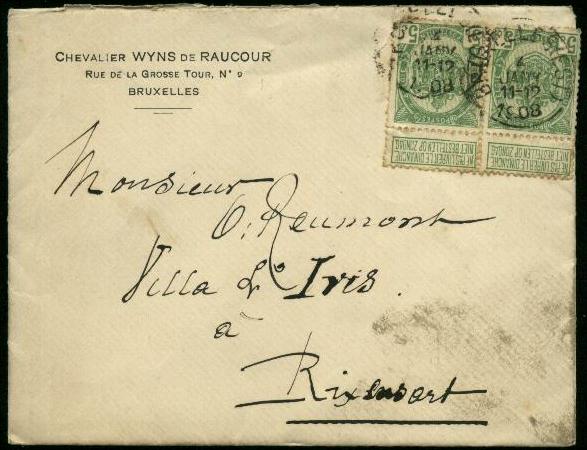 CHEVALIER WYNS DE RAUCOUR
RUE DE LA GROSSE TOUR, N° 9
BRUXELLES
5 5
4
JANV
11-12
1908
4
JANV
11-12
1908
POSTES
NE PAS LIVRER LE DIMANCHE
NIET BESTELLEN OP ZONDAG
NE PAS LIVRER LE DIMANCHE
NIET BESTELLEN OP ZONDAG
Monsieur
O. Reumont
Villa L'Iris.
à
Rixensart